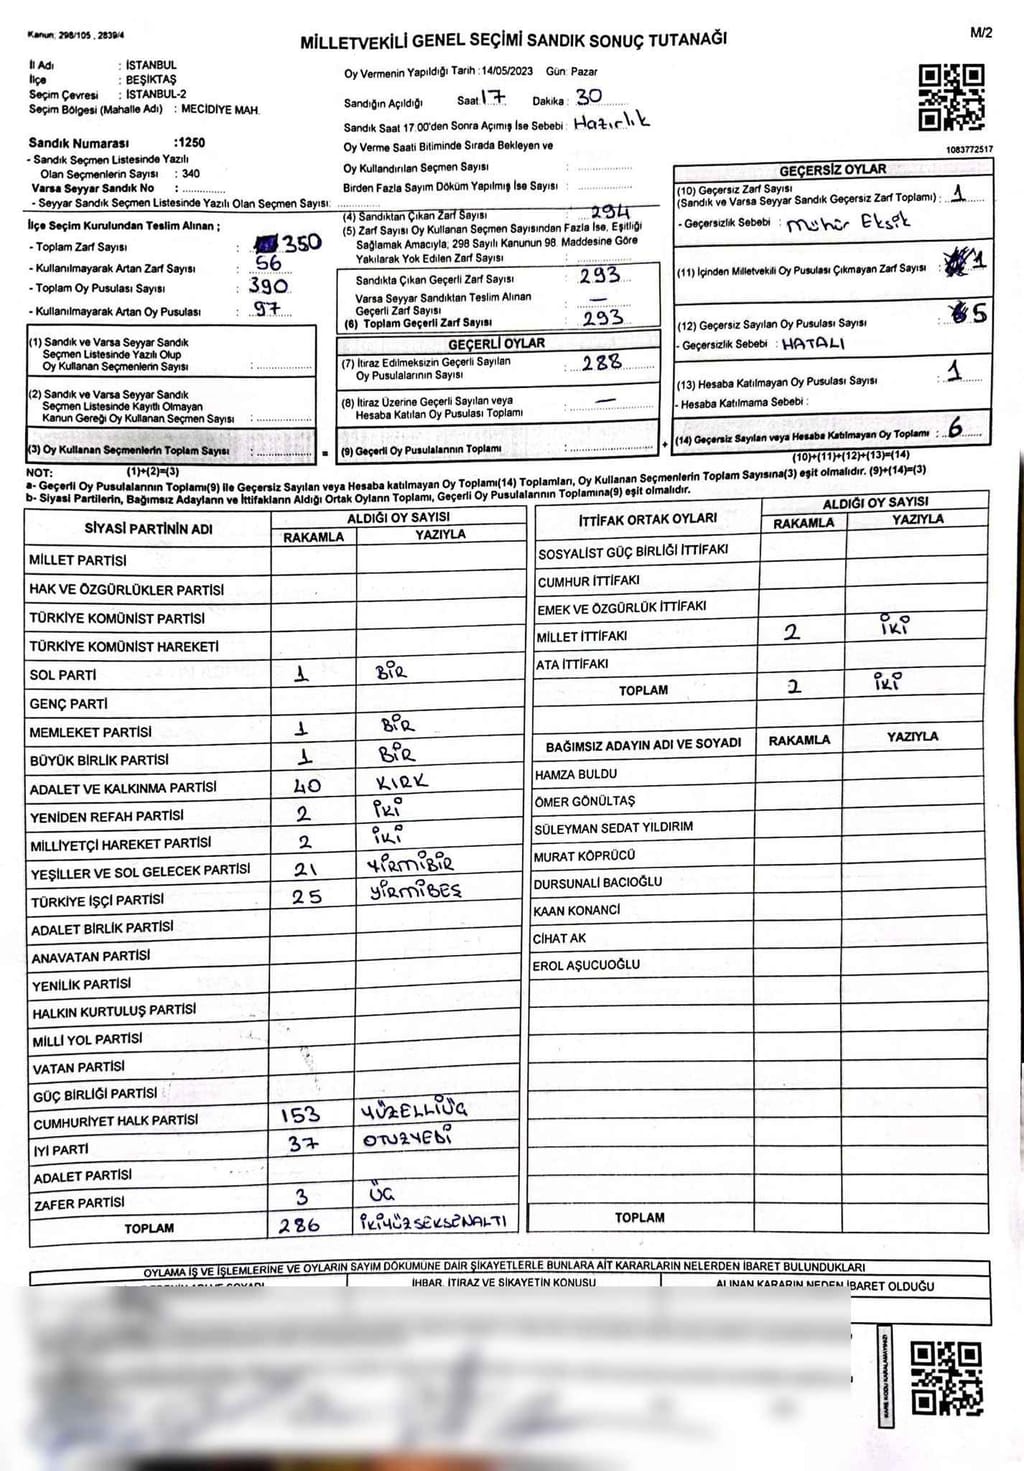 Kanun: 298/105, 2839/4
MİLLETVEKİLİ GENEL SEÇİMİ SANDIK SONUÇ TUTANAĞI
M/2
İl Adı : İSTANBUL
İlçe : BEŞİKTAŞ
Seçim Çevresi : İSTANBUL-2
Seçim Bölgesi (Mahalle Adı) : MECİDİYE MAH.
Oy Vermenin Yapıldığı Tarih :14/05/2023 Gün: Pazar
Sandığın Açıldığı Saat:17 Dakika: 30
Sandık Saat 17:00'den Sonra Açımış İse Sebebi: Hazırlık
Oy Verme Saati Bitiminde Sırada Bekleyen ve
Oy Kullandırılan Seçmen Sayısı :
Birden Fazla Sayım Döküm Yapılmış İse Sayısı :
1083772517
Sandık Numarası :1250
- Sandık Seçmen Listesinde Yazılı
Olan Seçmenlerin Sayısı : 340
Varsa Seyyar Sandık No :
- Seyyar Sandık Seçmen Listesinde Yazılı Olan Seçmen Sayısı:
İlçe Seçim Kurulundan Teslim Alınan ;
- Toplam Zarf Sayısı : 350
- Kullanılmayarak Artan Zarf Sayısı : 56
- Toplam Oy Pusulası Sayısı : 390
- Kullanılmayarak Artan Oy Pusulası : 97
(1) Sandık ve Varsa Seyyar Sandık
Seçmen Listesinde Yazılı Olup
Oy Kullanan Seçmenlerin Sayısı :
(2) Sandık ve Varsa Seyyar Sandık
Seçmen Listesinde Kayıtlı Olmayan
Kanun Gereği Oy Kullanan Seçmen Sayısı :
(3) Oy Kullanan Seçmenlerin Toplam Sayısı :
(1)+(2)=(3)
(4) Sandıktan Çıkan Zarf Sayısı : 294
(5) Zarf Sayısı Oy Kullanan Seçmen Sayısından Fazla İse, Eşitliği
Sağlamak Amacıyla, 298 Sayılı Kanunun 98. Maddesine Göre
Yakılarak Yok Edilen Zarf Sayısı :
Sandıkta Çıkan Geçerli Zarf Sayısı : 293
Varsa Seyyar Sandıktan Teslim Alınan
Geçerli Zarf Sayısı : —
(6) Toplam Geçerli Zarf Sayısı : 293
GEÇERLİ OYLAR
(7) İtiraz Edilmeksizin Geçerli Sayılan
Oy Pusulalarının Sayısı : 288
(8) İtiraz Üzerine Geçerli Sayılan veya
Hesaba Katılan Oy Pusulası Toplamı : —
= (9) Geçerli Oy Pusulalarının Toplamı : +
GEÇERSİZ OYLAR
(10) Geçersiz Zarf Sayısı
(Sandık ve Varsa Seyyar Sandık Geçersiz Zarf Toplamı) : 1
- Geçersizlik Sebebi : Mühür Eksik
(11) İçinden Milletvekili Oy Pusulası Çıkmayan Zarf Sayısı : 1
(12) Geçersiz Sayılan Oy Pusulası Sayısı : 5
- Geçersizlik Sebebi : HATALI
(13) Hesaba Katılmayan Oy Pusulası Sayısı : 1
- Hesaba Katılmama Sebebi :
(14) Geçersiz Sayılan veya Hesaba Katılmayan Oy Toplamı : 6
(10)+(11)+(12)+(13)=(14)
NOT:
a- Geçerli Oy Pusulalarının Toplamı(9) ile Geçersiz Sayılan veya Hesaba katılmayan Oy Toplamı(14) Toplamları, Oy Kullanan Seçmenlerin Toplam Sayısına(3) eşit olmalıdır. (9)+(14)=(3)
b- Siyasi Partilerin, Bağımsız Adayların ve İttifakların Aldığı Ortak Oyların Toplamı, Geçerli Oy Pusulalarının Toplamına(9) eşit olmalıdır.
SİYASİ PARTİNİN ADI ALDIĞI OY SAYISI
RAKAMLA YAZIYLA
MİLLET PARTİSİ
HAK VE ÖZGÜRLÜKLER PARTİSİ
TÜRKİYE KOMÜNİST PARTİSİ
TÜRKİYE KOMÜNİST HAREKETİ
SOL PARTİ 1 BİR
GENÇ PARTİ
MEMLEKET PARTİSİ 1 BİR
BÜYÜK BİRLİK PARTİSİ 1 BİR
ADALET VE KALKINMA PARTİSİ 40 KIRK
YENİDEN REFAH PARTİSİ 2 İKİ
MİLLİYETÇİ HAREKET PARTİSİ 2 İKİ
YEŞİLLER VE SOL GELECEK PARTİSİ 21 YİRMİBİR
TÜRKİYE İŞÇİ PARTİSİ 25 YİRMİBEŞ
ADALET BİRLİK PARTİSİ
ANAVATAN PARTİSİ
YENİLİK PARTİSİ
HALKIN KURTULUŞ PARTİSİ
MİLLİ YOL PARTİSİ
VATAN PARTİSİ
GÜÇ BİRLİĞİ PARTİSİ
CUMHURİYET HALK PARTİSİ 153 YÜZELLİÜÇ
İYİ PARTİ 37 OTUZYEDİ
ADALET PARTİSİ
ZAFER PARTİSİ 3 ÜÇ
TOPLAM 286 İKİYÜZSEKSENALTI
İTTİFAK ORTAK OYLARI ALDIĞI OY SAYISI
RAKAMLA YAZIYLA
SOSYALİST GÜÇ BİRLİĞİ İTTİFAKI
CUMHUR İTTİFAKI
EMEK VE ÖZGÜRLÜK İTTİFAKI
MİLLET İTTİFAKI 2 İKİ
ATA İTTİFAKI
TOPLAM 2 İKİ
BAĞIMSIZ ADAYIN ADI VE SOYADI RAKAMLA YAZIYLA
HAMZA BULDU
ÖMER GÖNÜLTAŞ
SÜLEYMAN SEDAT YILDIRIM
MURAT KÖPRÜCÜ
DURSUNALİ BACIOĞLU
KAAN KONANCİ
CİHAT AK
EROL AŞUCUOĞLU
TOPLAM
OYLAMA İŞ VE İŞLEMLERİNE VE OYLARIN SAYIM DÖKÜMÜNE DAİR ŞİKAYETLERLE BUNLARA AİT KARARLARIN NELERDEN İBARET BULUNDUKLARI
İHBAR, İTİRAZ VE ŞİKAYETİN KONUSU ALINAN KARARIN NEDEN İBARET OLDUĞU
KARE KODU KARALAMAYINIZ!